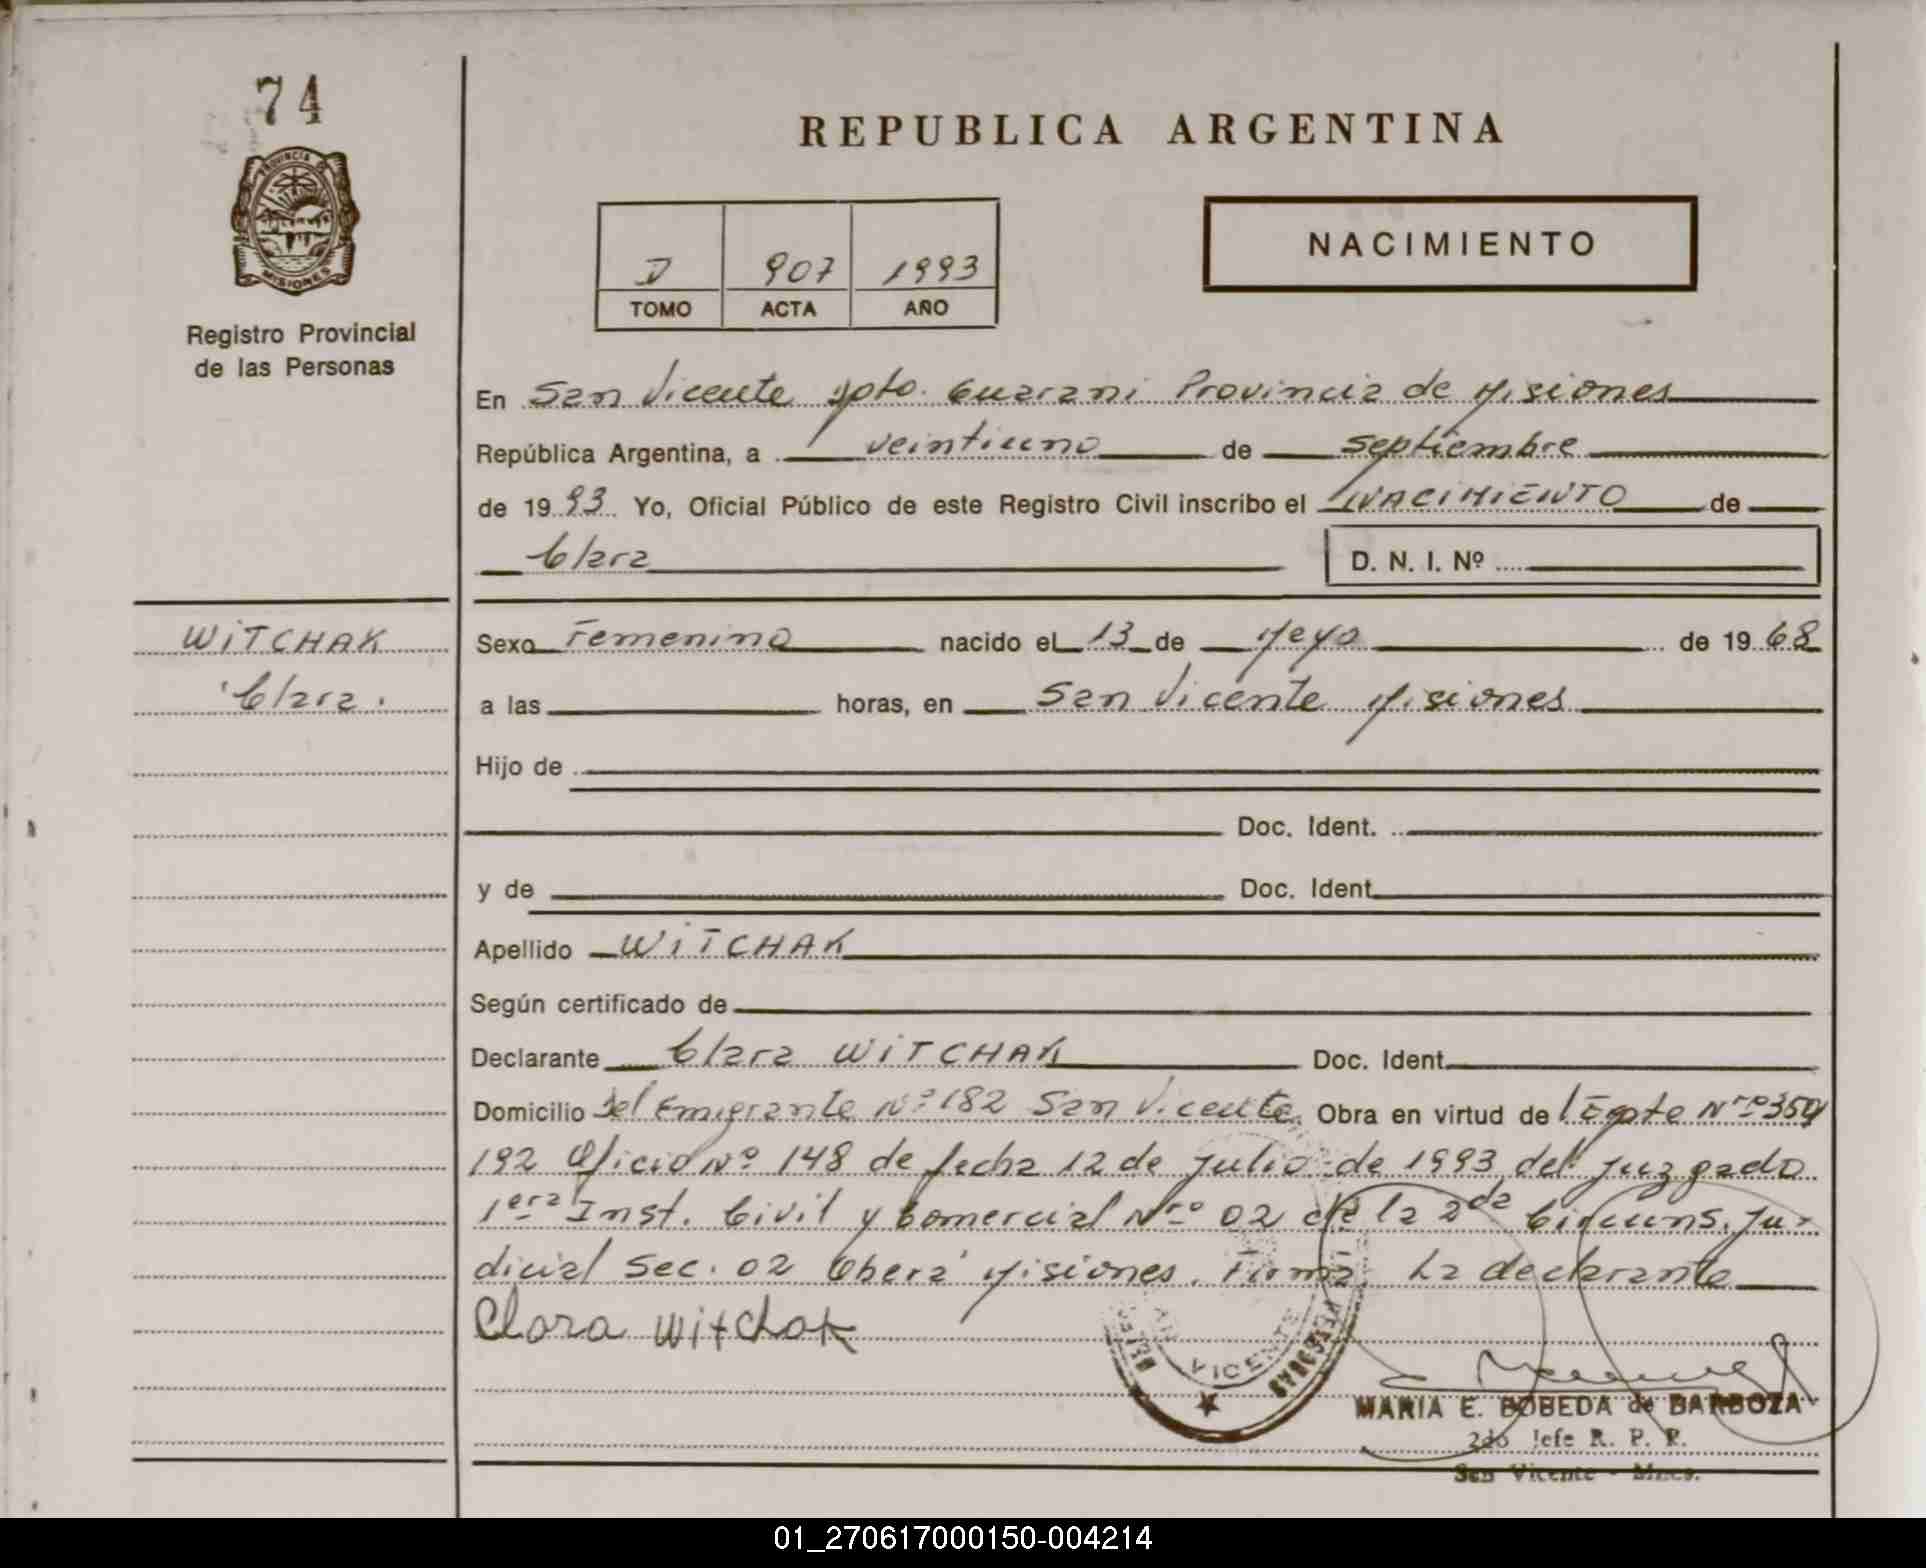 74
PROVINCIA DE
MISIONES
Registro Provincial
de las Personas
REPUBLICA ARGENTINA
D 907 1993
TOMO ACTA AÑO
NACIMIENTO
En San Vicente Dpto. Guarani Provincia de Misiones
República Argentina, a veintiuno de septiembre
de 1993 Yo, Oficial Público de este Registro Civil inscribo el NACIMIENTO de
Clara D. N. I. Nº
WITCHAK
Clara.
Sexo Femenino nacido el 13 de Mayo de 1968
a las horas, en San Vicente Misiones
Hijo de
Doc. Ident.
y de Doc. Ident.
Apellido WITCHAK
Según certificado de
Declarante Clara WITCHAK Doc. Ident.
Domicilio del Emigrante Nº 182 San Vicente. Obra en virtud de Expte Nro 359
192 Oficio Nº 148 de fecha 12 de Julio de 1993 del Juzgado
1era Inst. Civil y Comercial Nro 02 de la 2da Circuns. Ju-
dicial Sec. 02 Oberá Misiones. Firma: La declarante
Clara Witchak
VICENTE
PERSONAS
MARIA E. BOBEDA de BARBOZA
2do Jefe R. P. P.
San Vicente - Mnes.
01_270617000150-004214